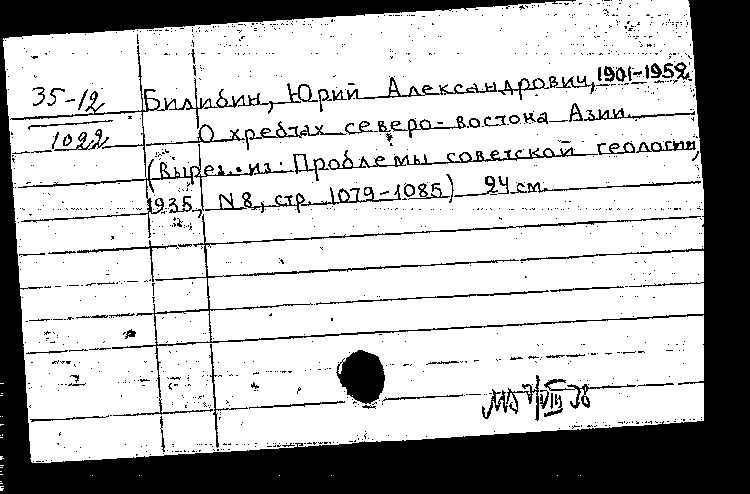 35-12
1022
Билибин, Юрий Александрович, 1901-1952
О хребтах северо-востока Азии.
(Вырез. из: Проблемы советской геологии,
1935, N 8, стр. 1079-1085) 24 см.